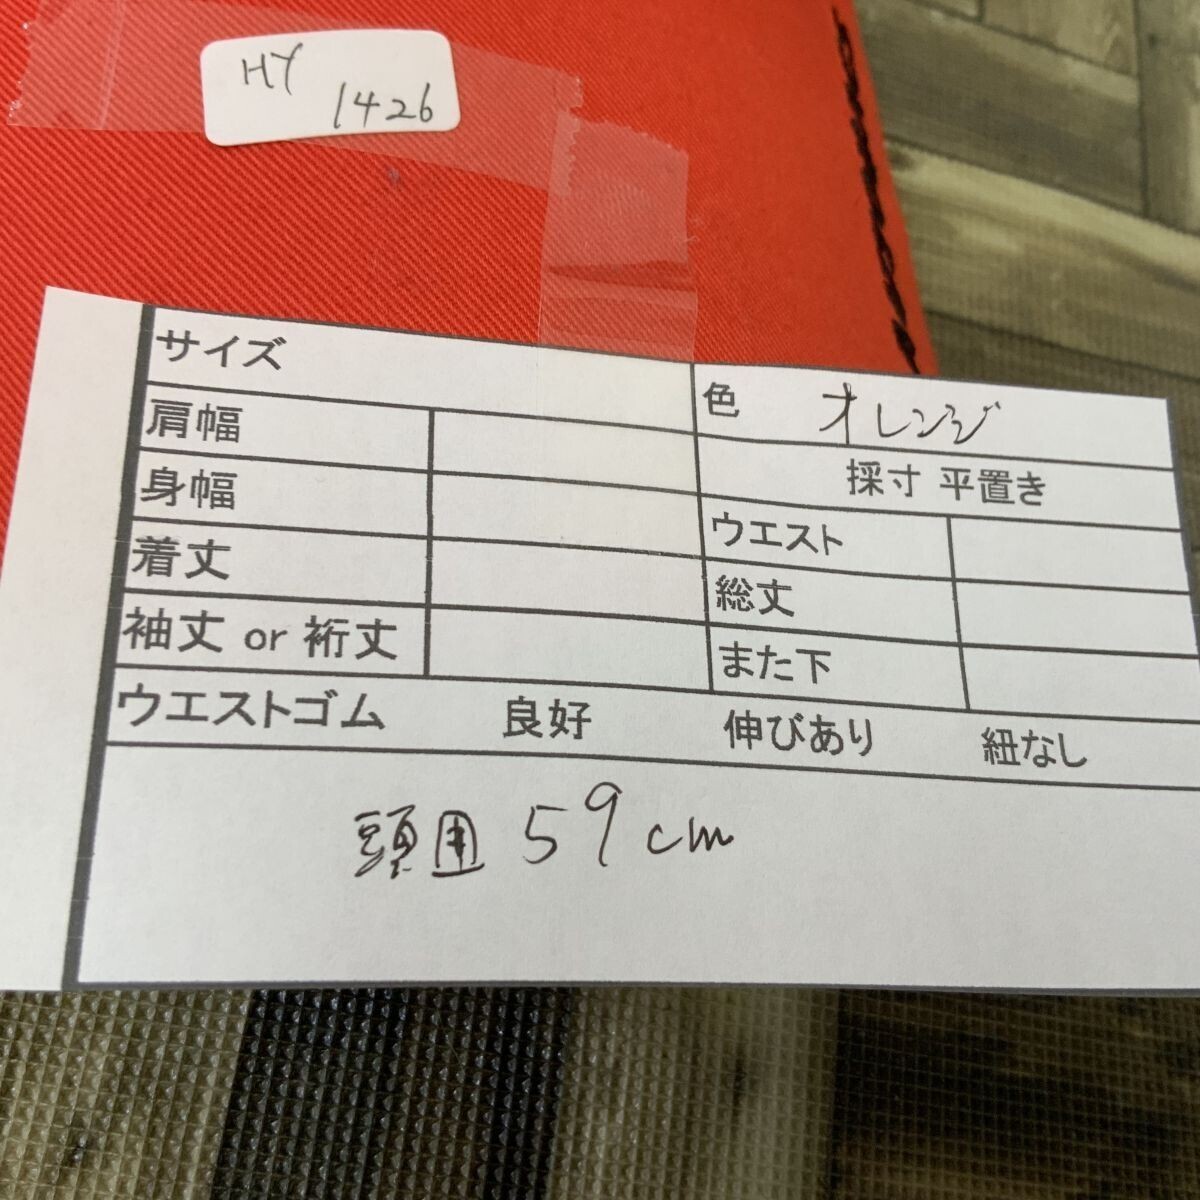 HY
1426
サイズ
色 オレンジ
肩幅
採寸 平置き
身幅
ウエスト
着丈
総丈
袖丈 or 裄丈
また下
ウエストゴム 良好 伸びあり 紐なし
頭囲 59cm